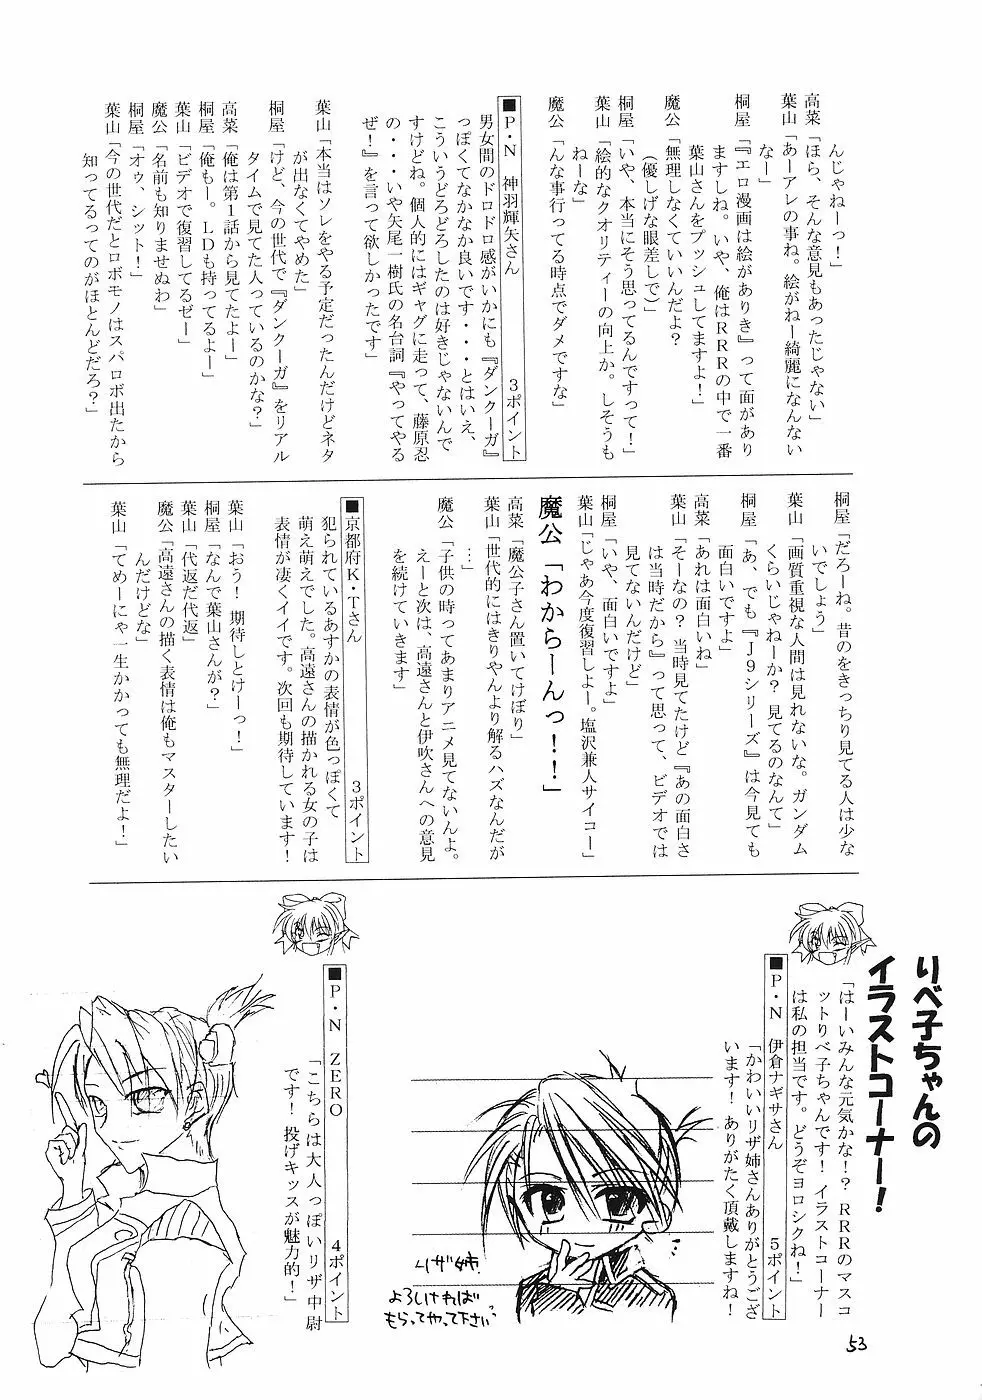 んじゃねーっ！」
高菜「ほら、そんな意見もあったじゃない」
葉山「あーアレの事ね。絵がねー綺麗になんない
なー」
桐屋「『エロ漫画は絵がありき』って面があり
ますしね。いや、俺はＲＲＲの中で一番
葉山さんをプッシュしてますよ！」
魔公「無理しなくていいんだよ？
（優しげな眼差しで）
桐屋「いや、本当にそう思ってるんですって！」
葉山「絵的なクオリティーの向上か。しそうも
ねーな」
魔公「んな事行ってる時点でダメですな」
■Ｐ・Ｎ　神羽輝矢さん　３ポイント
男女間のドロドロ感がいかにも『ダンクーガ』
っぽくてなかなか良いです・・・とはいえ、
こういうどろどろしたのは好きじゃないんで
すけどね。個人的にはギャグに走って、藤原忍
の・・・いや矢尾一樹氏の名台詞『やってやる
ぜ！』を言って欲しかったです」
葉山「本当はソレをやる予定だったんだけどネタ
が出なくてやめた」
桐屋「けど、今の世代で『ダンクーガ』をリアル
タイムで見てた人っているのかな？」
高菜「俺は第１話から見てたよー」
桐屋「俺もー。ＬＤも持ってるよー」
葉山「ビデオで復習してるゼー」
魔公「名前も知りませぬわ」
桐屋「オゥ、シット！」
葉山「今の世代だとロボモノはスパロボ出たから
知ってるってのがほとんどだろ？」
桐屋「だろーね。昔のをきっちり見てる人は少な
いでしょう」
葉山「画質重視な人間は見れないな。ガンダム
くらいじゃねーか？見てるのなんて」
桐屋「あ、でも『Ｊ９シリーズ』は今見ても
面白いですよ」
高菜「あれは面白いね」
葉山「そーなの？当時見てたけど『あの面白さ
は当時だから』って思って、ビデオでは
見てないんだけど」
桐屋「いや、面白いですよ」
葉山「じゃあ今度復習しよー。塩沢兼人サイコー」
魔公「わからーんっ！！」
高菜「魔公子さん置いてけぼり」
葉山「世代的にはきりやんより解るハズなんだが
…」
魔公「子供の時ってあまりアニメ見てないんよ。
えーと次は、高遠さんと伊吹さんへの意見
を続けていきます」
■京都府Ｋ・Ｔさん　３ポイント
犯られているあすかの表情が色っぽくて
萌え萌えでした。高遠さんの描かれる女の子は
表情が凄くイイです。次回も期待しています！
葉山「おう！期待しとけーっ！」
桐屋「なんで葉山さんが？」
葉山「代返だ代返」
魔公「高遠さんの描く表情は俺もマスターしたい
んだけどな」
葉山「てめーにゃ一生かかっても無理だよ！」
りべ子ちゃんの
イラストコーナー！
「はーいみんな元気かな！？ＲＲＲのマスコ
ットりべ子ちゃんです！イラストコーナー
は私の担当です。どうぞヨロシクね！」
■Ｐ・Ｎ　伊倉ナギサさん　５ポイント
「かわいいリザ姉さんありがとうござ
います！ありがたく頂戴しますね！
リザ姉。
よろしければ
もらってやって下さいっ
■Ｐ・Ｎ　ＺＥＲＯ　４ポイント
「こちらは大人っぽいリザ中尉
です！投げキッスが魅力的！」
53